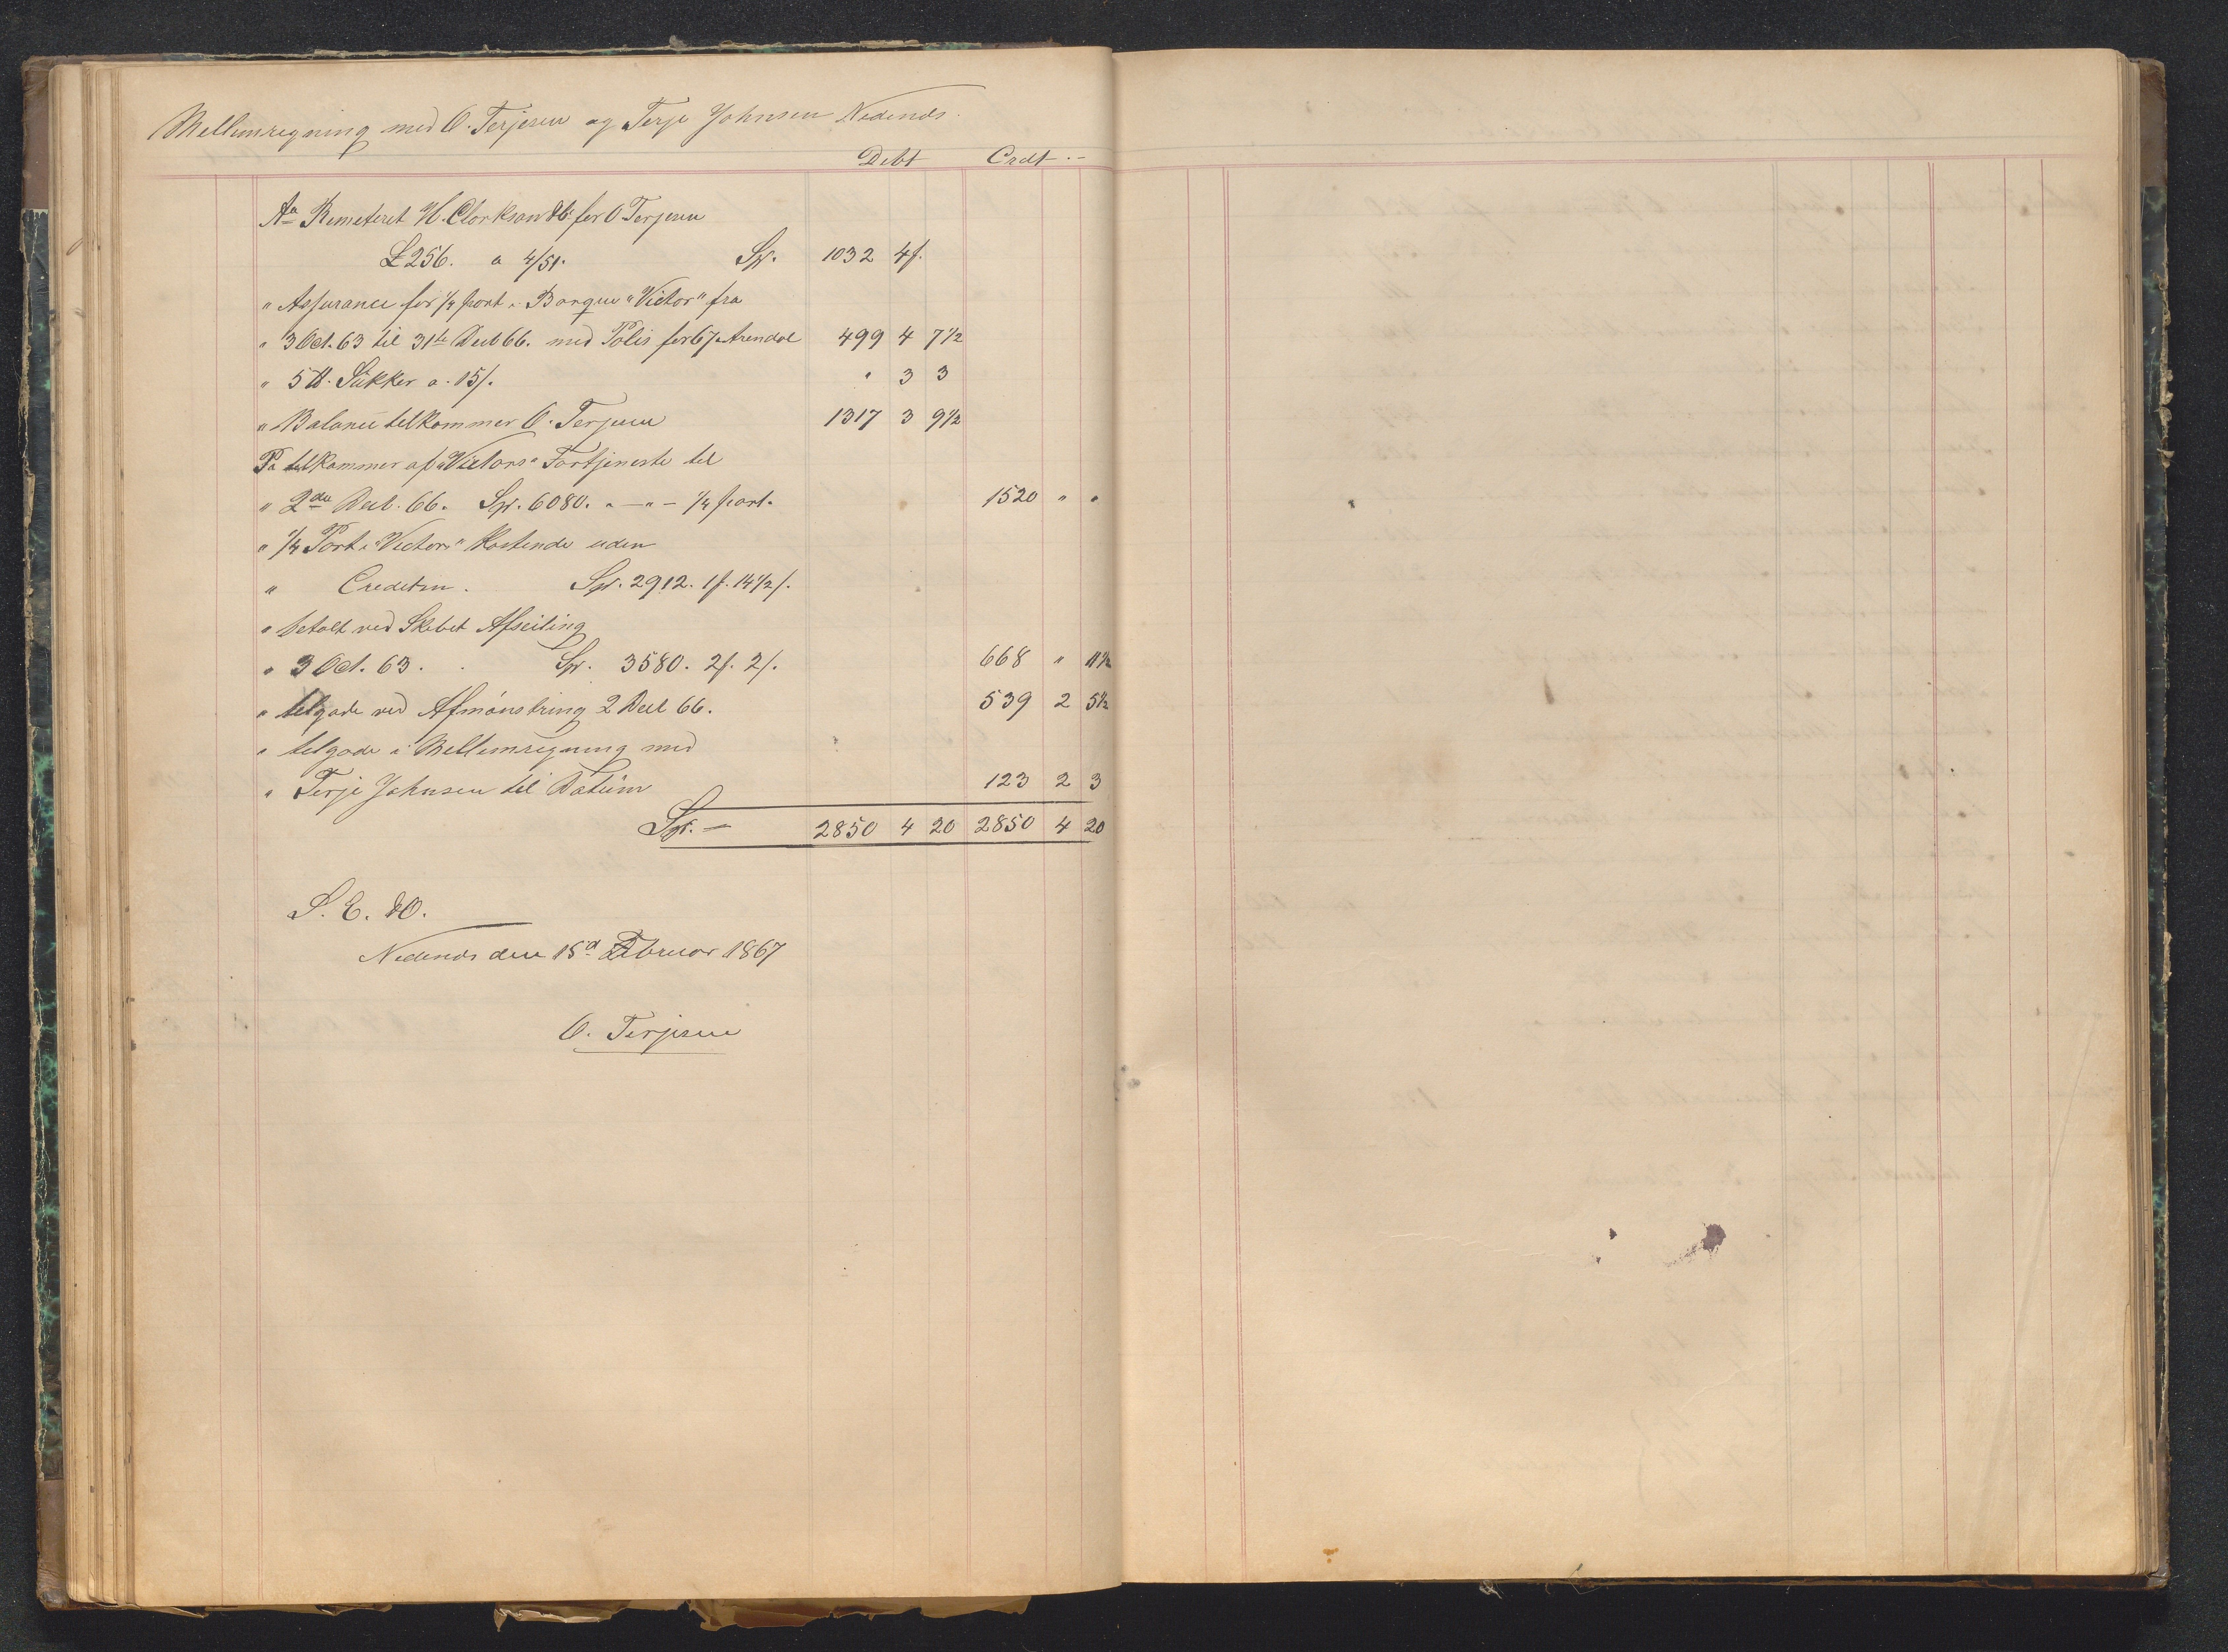 Mellemregning med O. Terjesen og Terje Johnsen Nedenes.
Debt Crdt.
Aa Remeteret H. Clarkson & Co for O Terjesen
£ 256. a 4/51. Sp. 1032 4f.
" Assurance for 1/4 part i Barque "Victor" fra
" 3 Oct. 63 til 31te Decb 66. med Polis for 67 i Arendal 499 4 7 1/2
" 5 ℔. Sukker a. 15/. " 3 3
" Balance tilkommer O. Terjesen 1317 3 9 1/2
Pa tilkommer af "Victors" Fortjeneste til
" 2den Decb. 66. Sp. 6080. " — " — 1/4 part. 1520 " "
" 1/4 Part i "Victor" Kostende uden
" Crediten. Sp. 2912. 1f. 14 1/2/.
" betalt ved Skibet Afseiling
" 3 Oct. 63. Sp. 3580. 2f. 2/. 668 " 11 1/2
" tilgode ved Afmønstring 2 Decb 66. 539 2 5 1/2
" tilgode i Mellemregning med
" Terje Johnsen til Datum 123 2 3
Sp. — 2850 4 20 2850 4 20
S. E. & O.
Nedenes den 15d Februar 1867
O. Terjesen